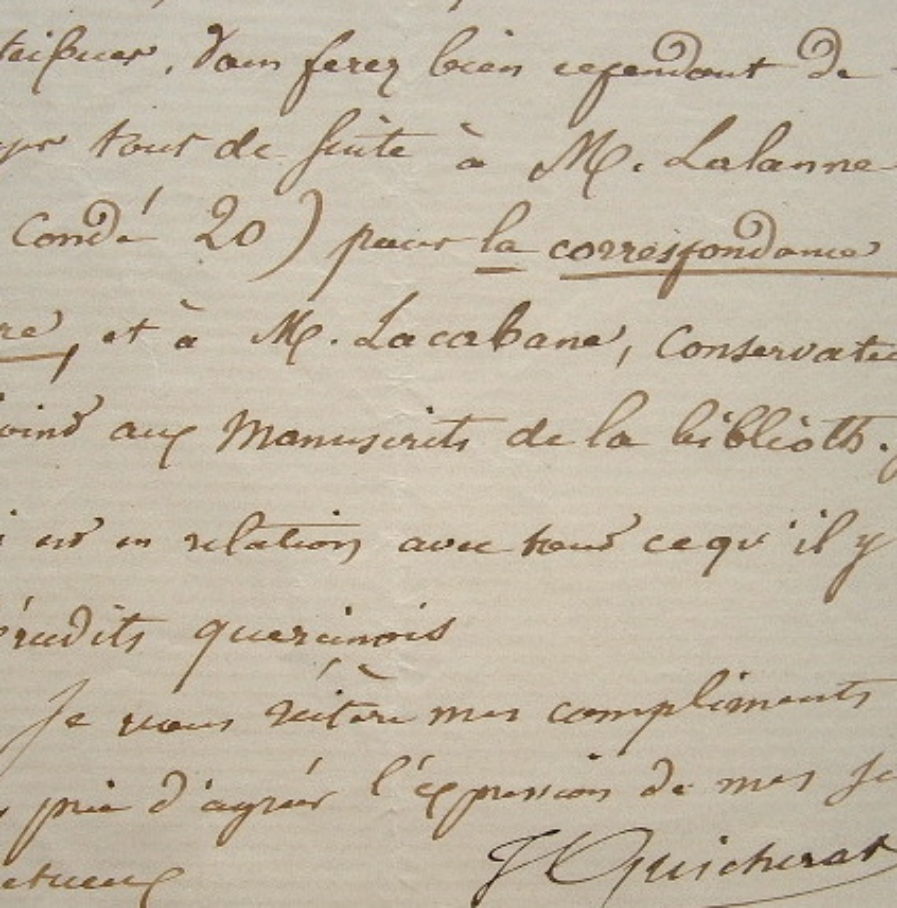 Vous ferez bien cependant de
tout de suite à M. Lalanne
Condé 20) pour la correspondance
re, et à M. Lacabane, Conservate
aux Manuscrits de la biblioth.
est en relation avec tout ce qu'il y
érudits quercinois
Je vous réitère mes compliments
prie d'agréer l'expression de mes se
ctueux
J Quicherat